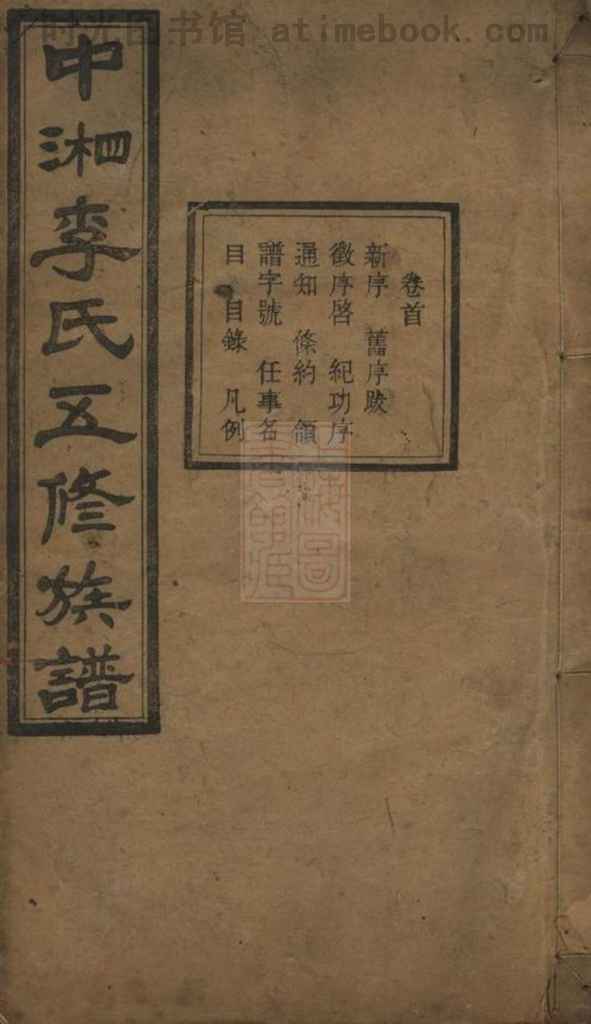 时光图书馆 atimebook.com
中湘李氏五修族譜
卷首
新序 舊序跋
徵序啓 紀功序
通知 條約 領
譜字號 任事名
目 目錄 凡例